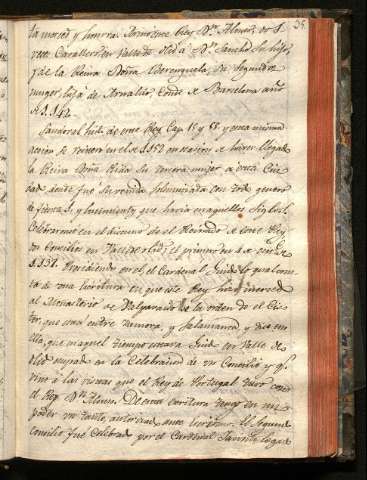 35.
ta merced y honrra Dominque Rey Dn. Alonso,
Caballero en Valladd. Dn. Sancho su hijo,
y de la Reina Doña Berenguela, su segunda
muger, hija de Arnaldo, Conde de Barcelona año
de 1142.
Sandoval hist. de este Rey Cap. 15 y 58. y esta misma
se reitero en el de 1152 en ocasion de haver llegado
la Reina Doña Rica su tercera muger a esta Ciu
dad donde fue su venida solemnizada con todo genero
de fiestas, y lucimiento que havia en aquellos siglos.
Celebraronse en el discurso de el Reinado de este Rey
dos Concilios en Vallad. el primero en 4 de
1137. Presidiendo en el el Cardenal Guido lo qual cons
ta de una escritura en que este Rey hizo merced
al Monasterio de Valparaiso de la orden de el Cis
ter, que esta entre Zamora, y Salamanca y dice en
ella, que en aquel tiempo estava Guido en Valle de
olid ocupado en la Celebracion de un Concilio y q.
vino a las vistas que el Rey de Portugal tuvo con
el Rey Dn. Alonso. De esta escritura tengo en mi
poder un tanto, autorizado ante escribano. El segundo
Concilio fue celebrado por el Cardenal Jacinto, legado